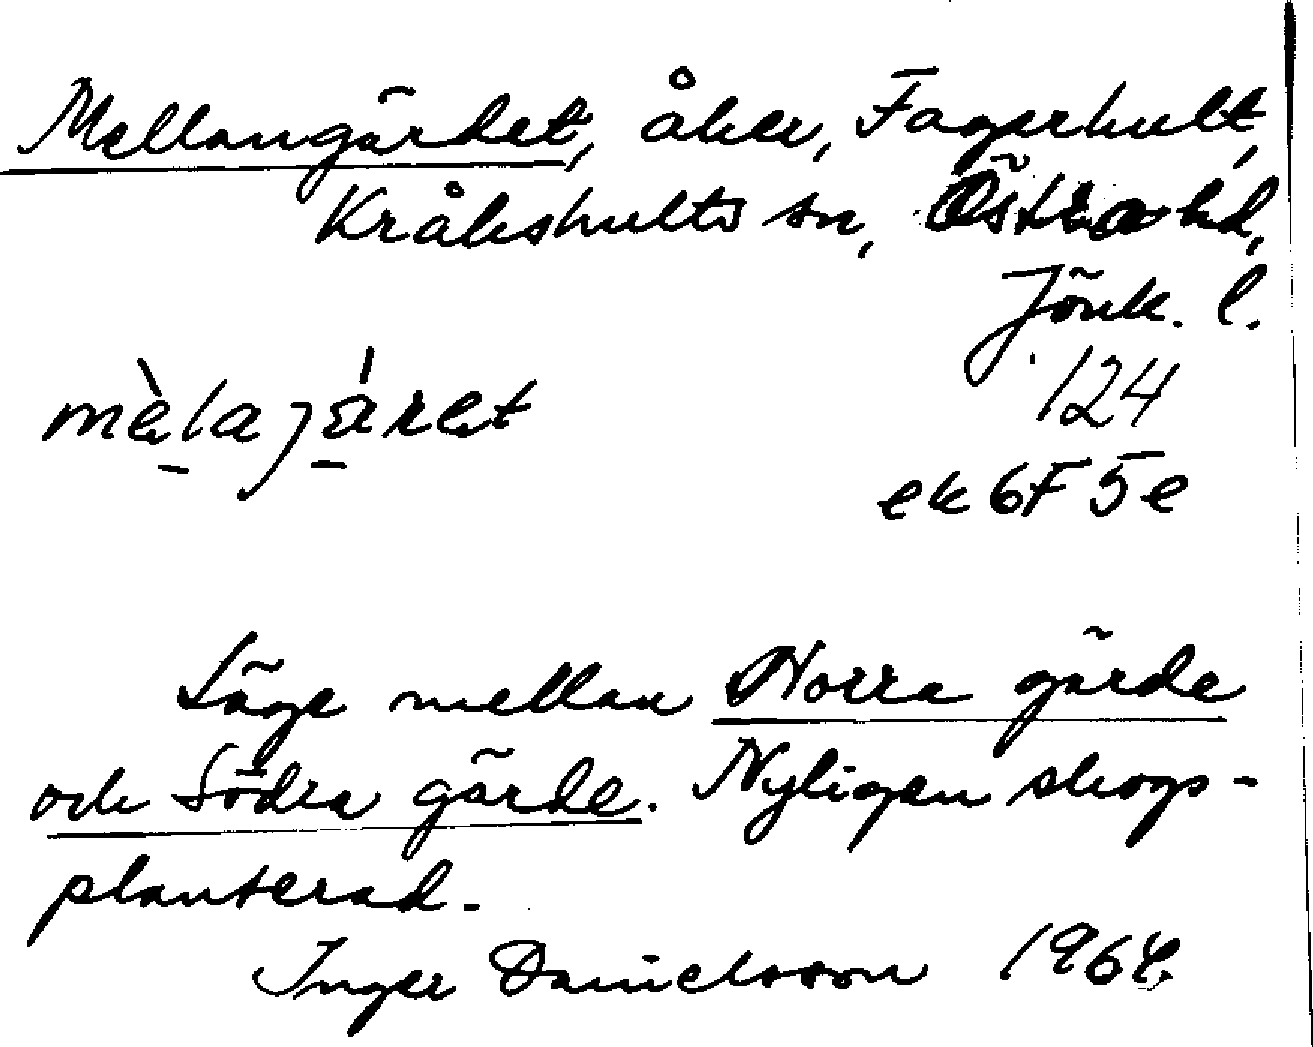 Mellangärdet, åker, Fagerhult,
Kråkshults sn, Östra hd,
Jönk. l.
124
mèlajáret
ek 6F 5e
Läge mellan Norra gärde
och Södra gärde. Nyligen skogs-
planterad.
Inger Danielsson 1964.